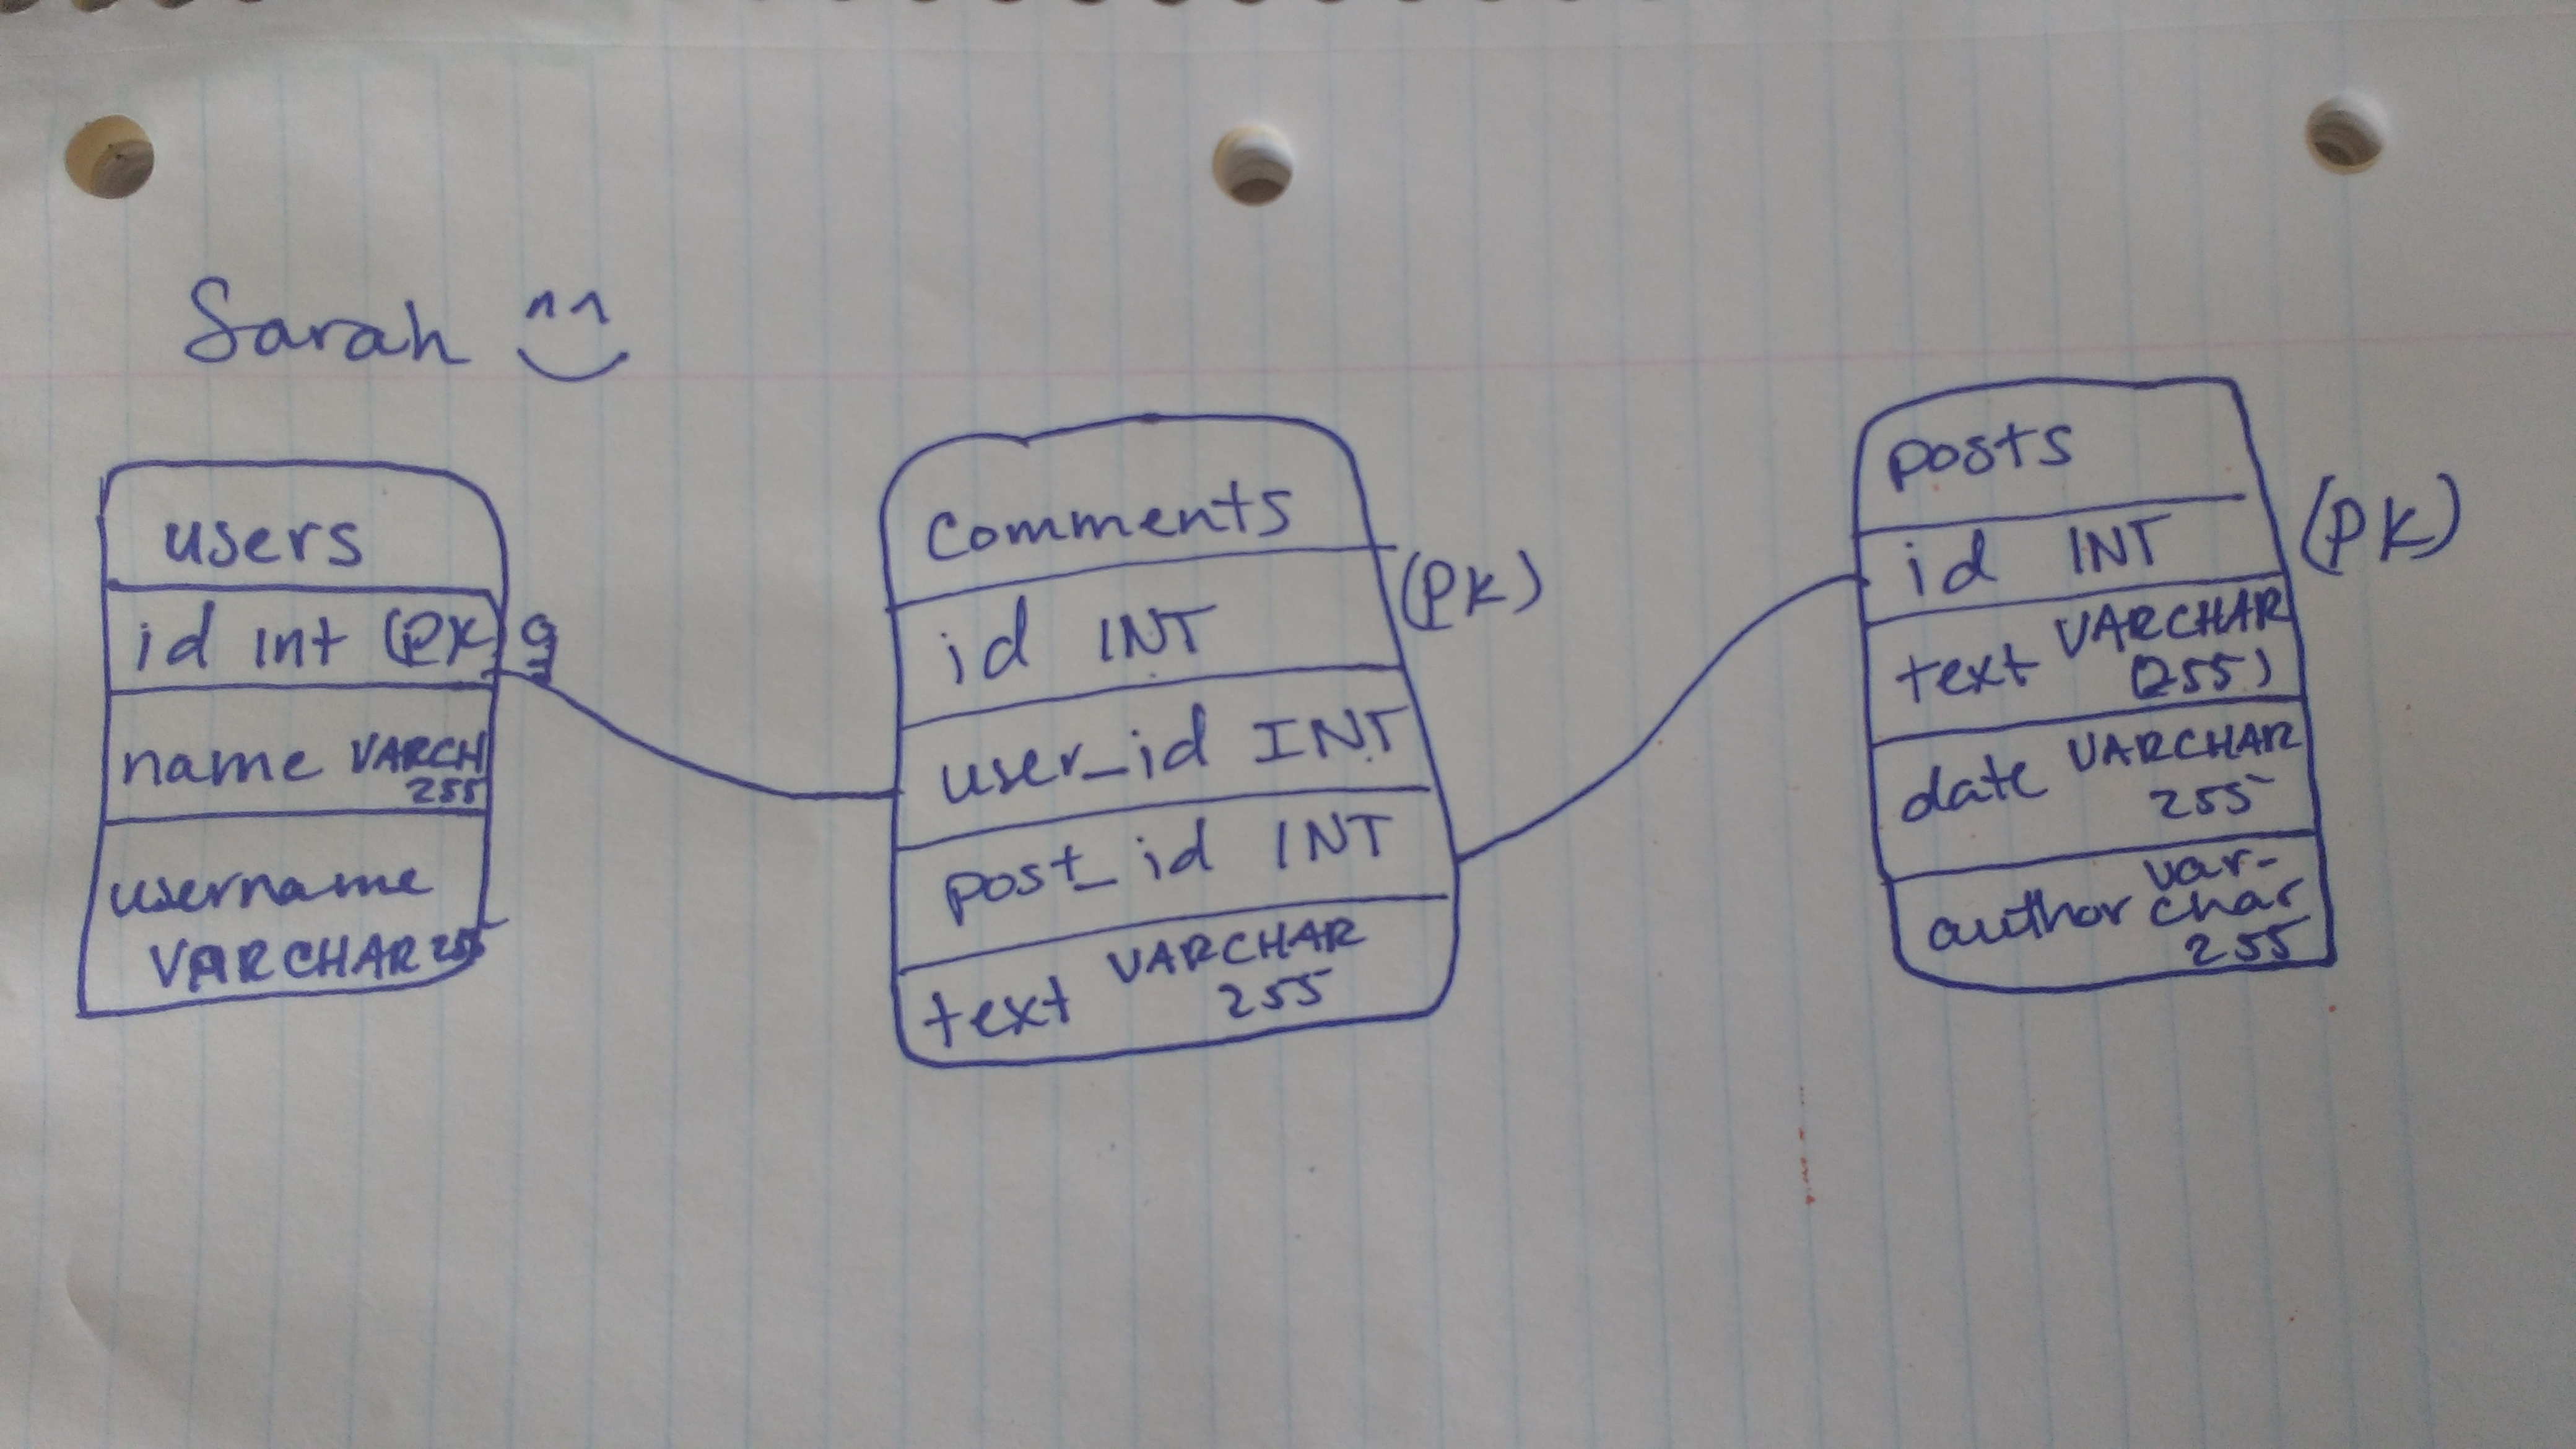 Sarah
users
id int (PK)
name VARCH
255
username
VARCHAR 255
comments
id INT (PK)
user_id INT
post_id INT
text VARCHAR
255
posts
id INT (PK)
text VARCHAR
(255)
date VARCHAR
255
author var-
char
255